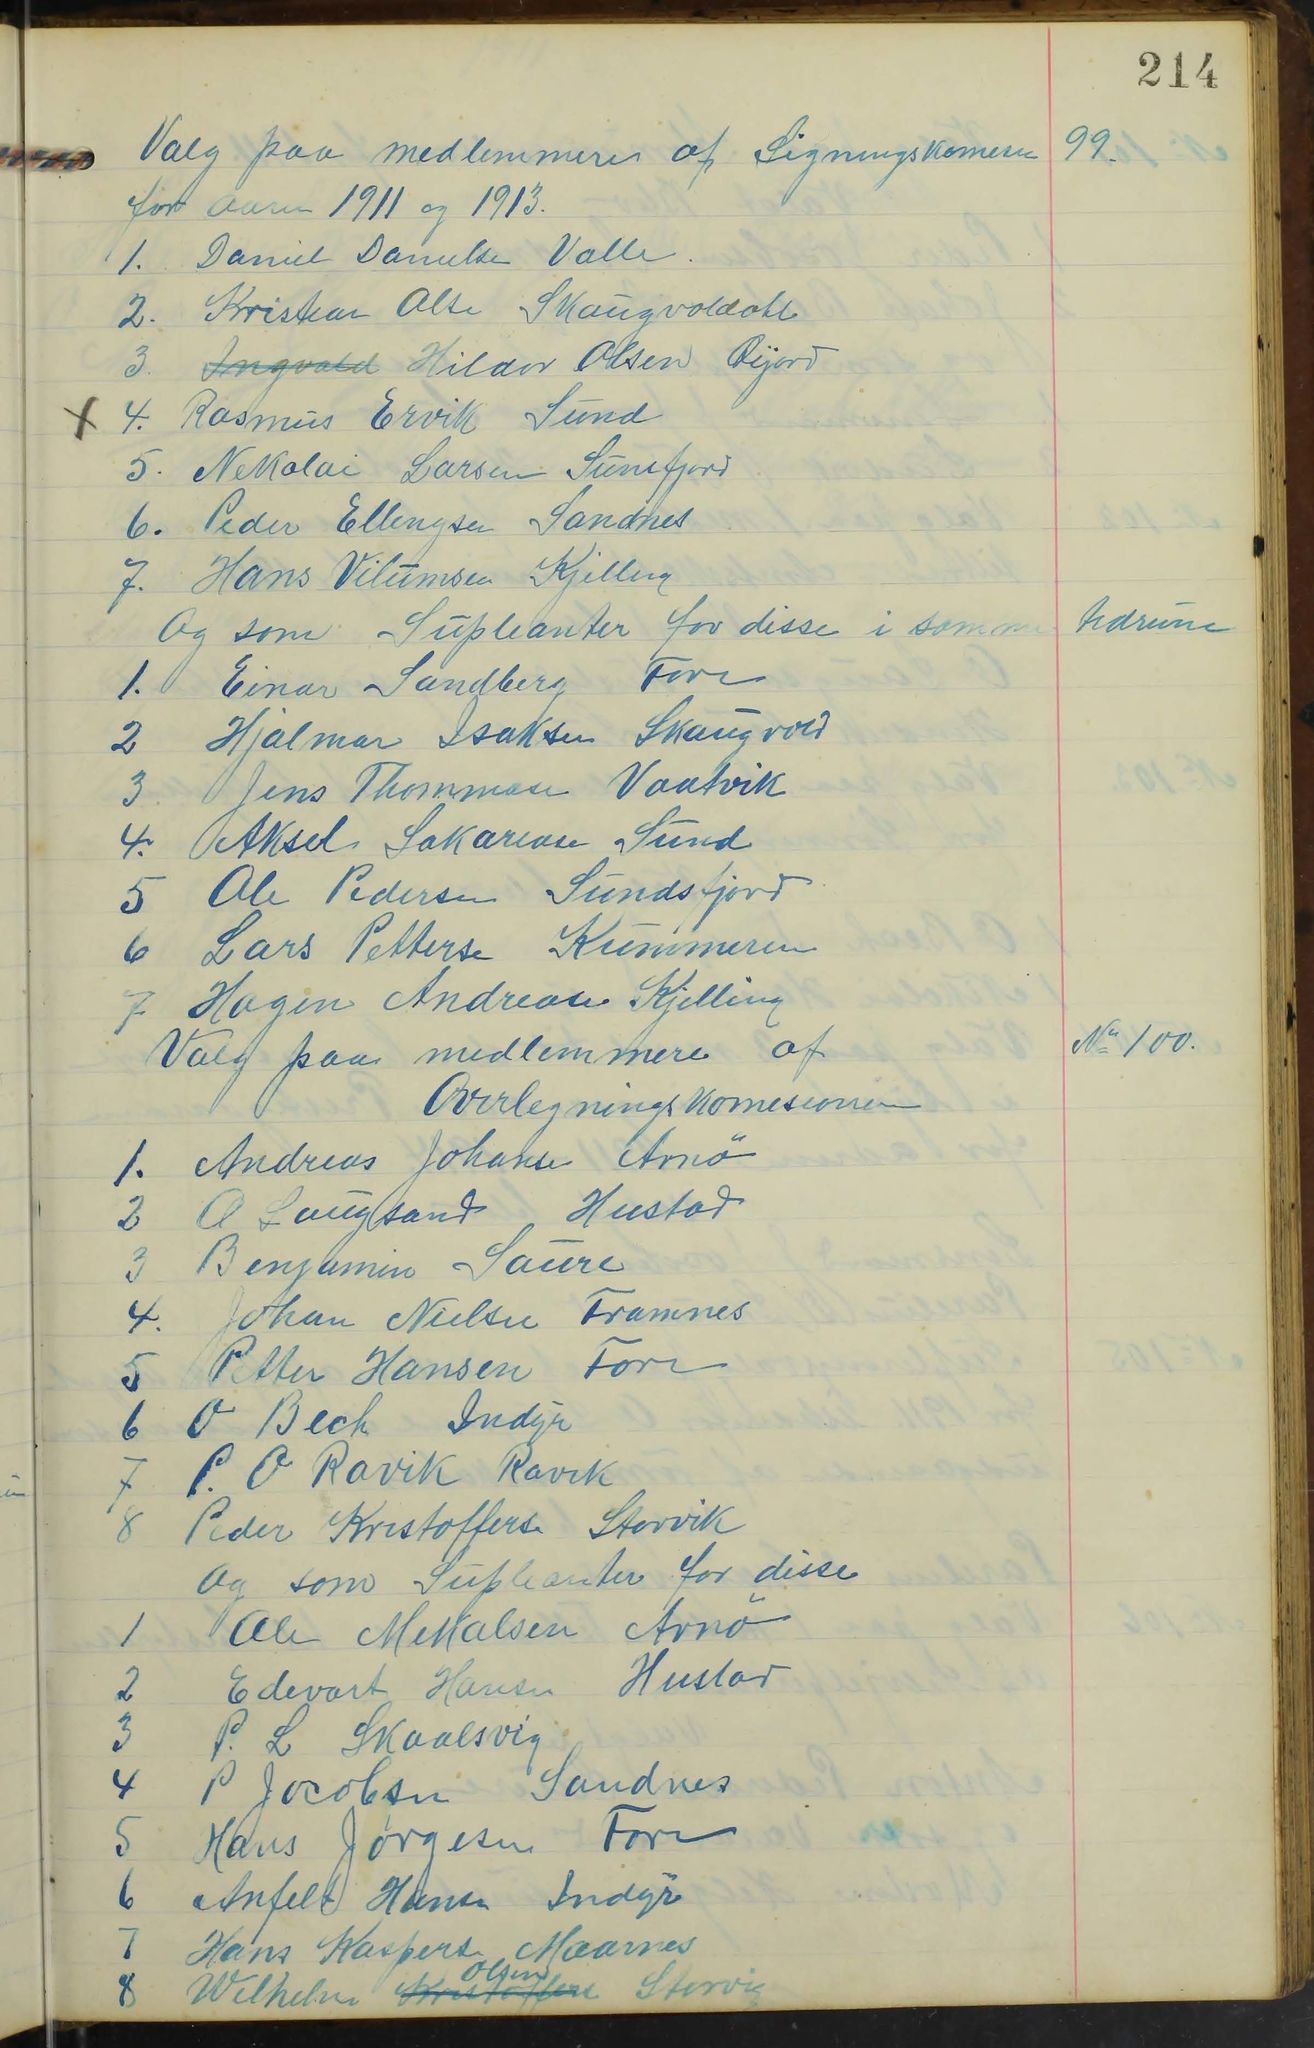 214
Valg paa medlemmere af Ligningskomesen 99.
for aaren 1911 og 1913.
1. Daniel Danielse Valle.
2. Kristian Olse Skaugvoldahl
3. Ingvald Hildor Olsen Øijord
X 4. Rasmus Ervik Sund
5. Nekolai Larsen Sunsfjord
6. Peder Ellengsen Sandnes
7. Hans Vilumsen Kjelling
Og som Supleanter for disse i somme tidrum
1. Einar Sandberg Fore
2 Hjalmar Isaksen Skaugvold
3 Jens Thommase Vaatvik
4. Aksel Sakariase Sund
5 Ole Pedersen Sundsfjord
6 Lars Petterse Kummeren
7 Hagen Andrease Kjelling
Valg paa medlemmere af No 100.
Overlegningskomesionen
1. Andreas Johanse Arnö
2 A Laugsand Hustad
3 Benjamin Saure
4. Johan Nielsen Framnes
5 Petter Hansen Fore
6 O Bech Indyr
7 P. O Ravik Ravik
8 Peder Kristofferse Storvik
og som Supleanter for disse
1 Ole Mekalsen Arnö
2 Edevart Hansen Hustad
3 P. L Skaalsvig
4 P Jocobsen Sandnes
5 Hans Jørgesen Fore
6 Anfelt Hansen Indyr
7 Hans Kasperse Maarnes
8 Wilhelm Kristoffere Olsen Storvig